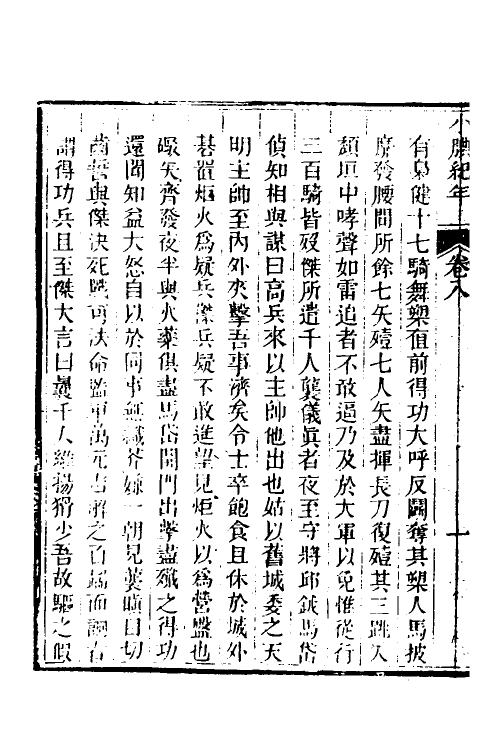 小腆紀年 卷八 一
有梟健十七騎舞槊值前得功大呼反鬭奪其槊人馬披
靡發腰間所餘七矢殪七人矢盡揮長刀復殪其三跳入
頹垣中哮聲如雷追者不敢逼乃及於大軍以免惟從行
三百騎皆歿傑所遣千人襲儀眞者夜至守將邱鉞馬岱
偵知相與謀曰高兵來以主帥他出也姑以舊城委之天
明主帥至內外夾擊吾事濟矣令士卒飽食且休於城外
碁置炬火爲疑兵傑兵疑不敢進望見炬火以爲營盤也
礮矢齊發夜半與火藥俱盡馬岱開門出擊盡殲之得功
還聞知益大怒自以於同事無纖芥嫌一朝見襲瞋目切
齒誓與傑決死戰可法命監軍萬元吉解之百
謂得功兵且至傑大言曰襲千人維揚猾少吾故驅之假